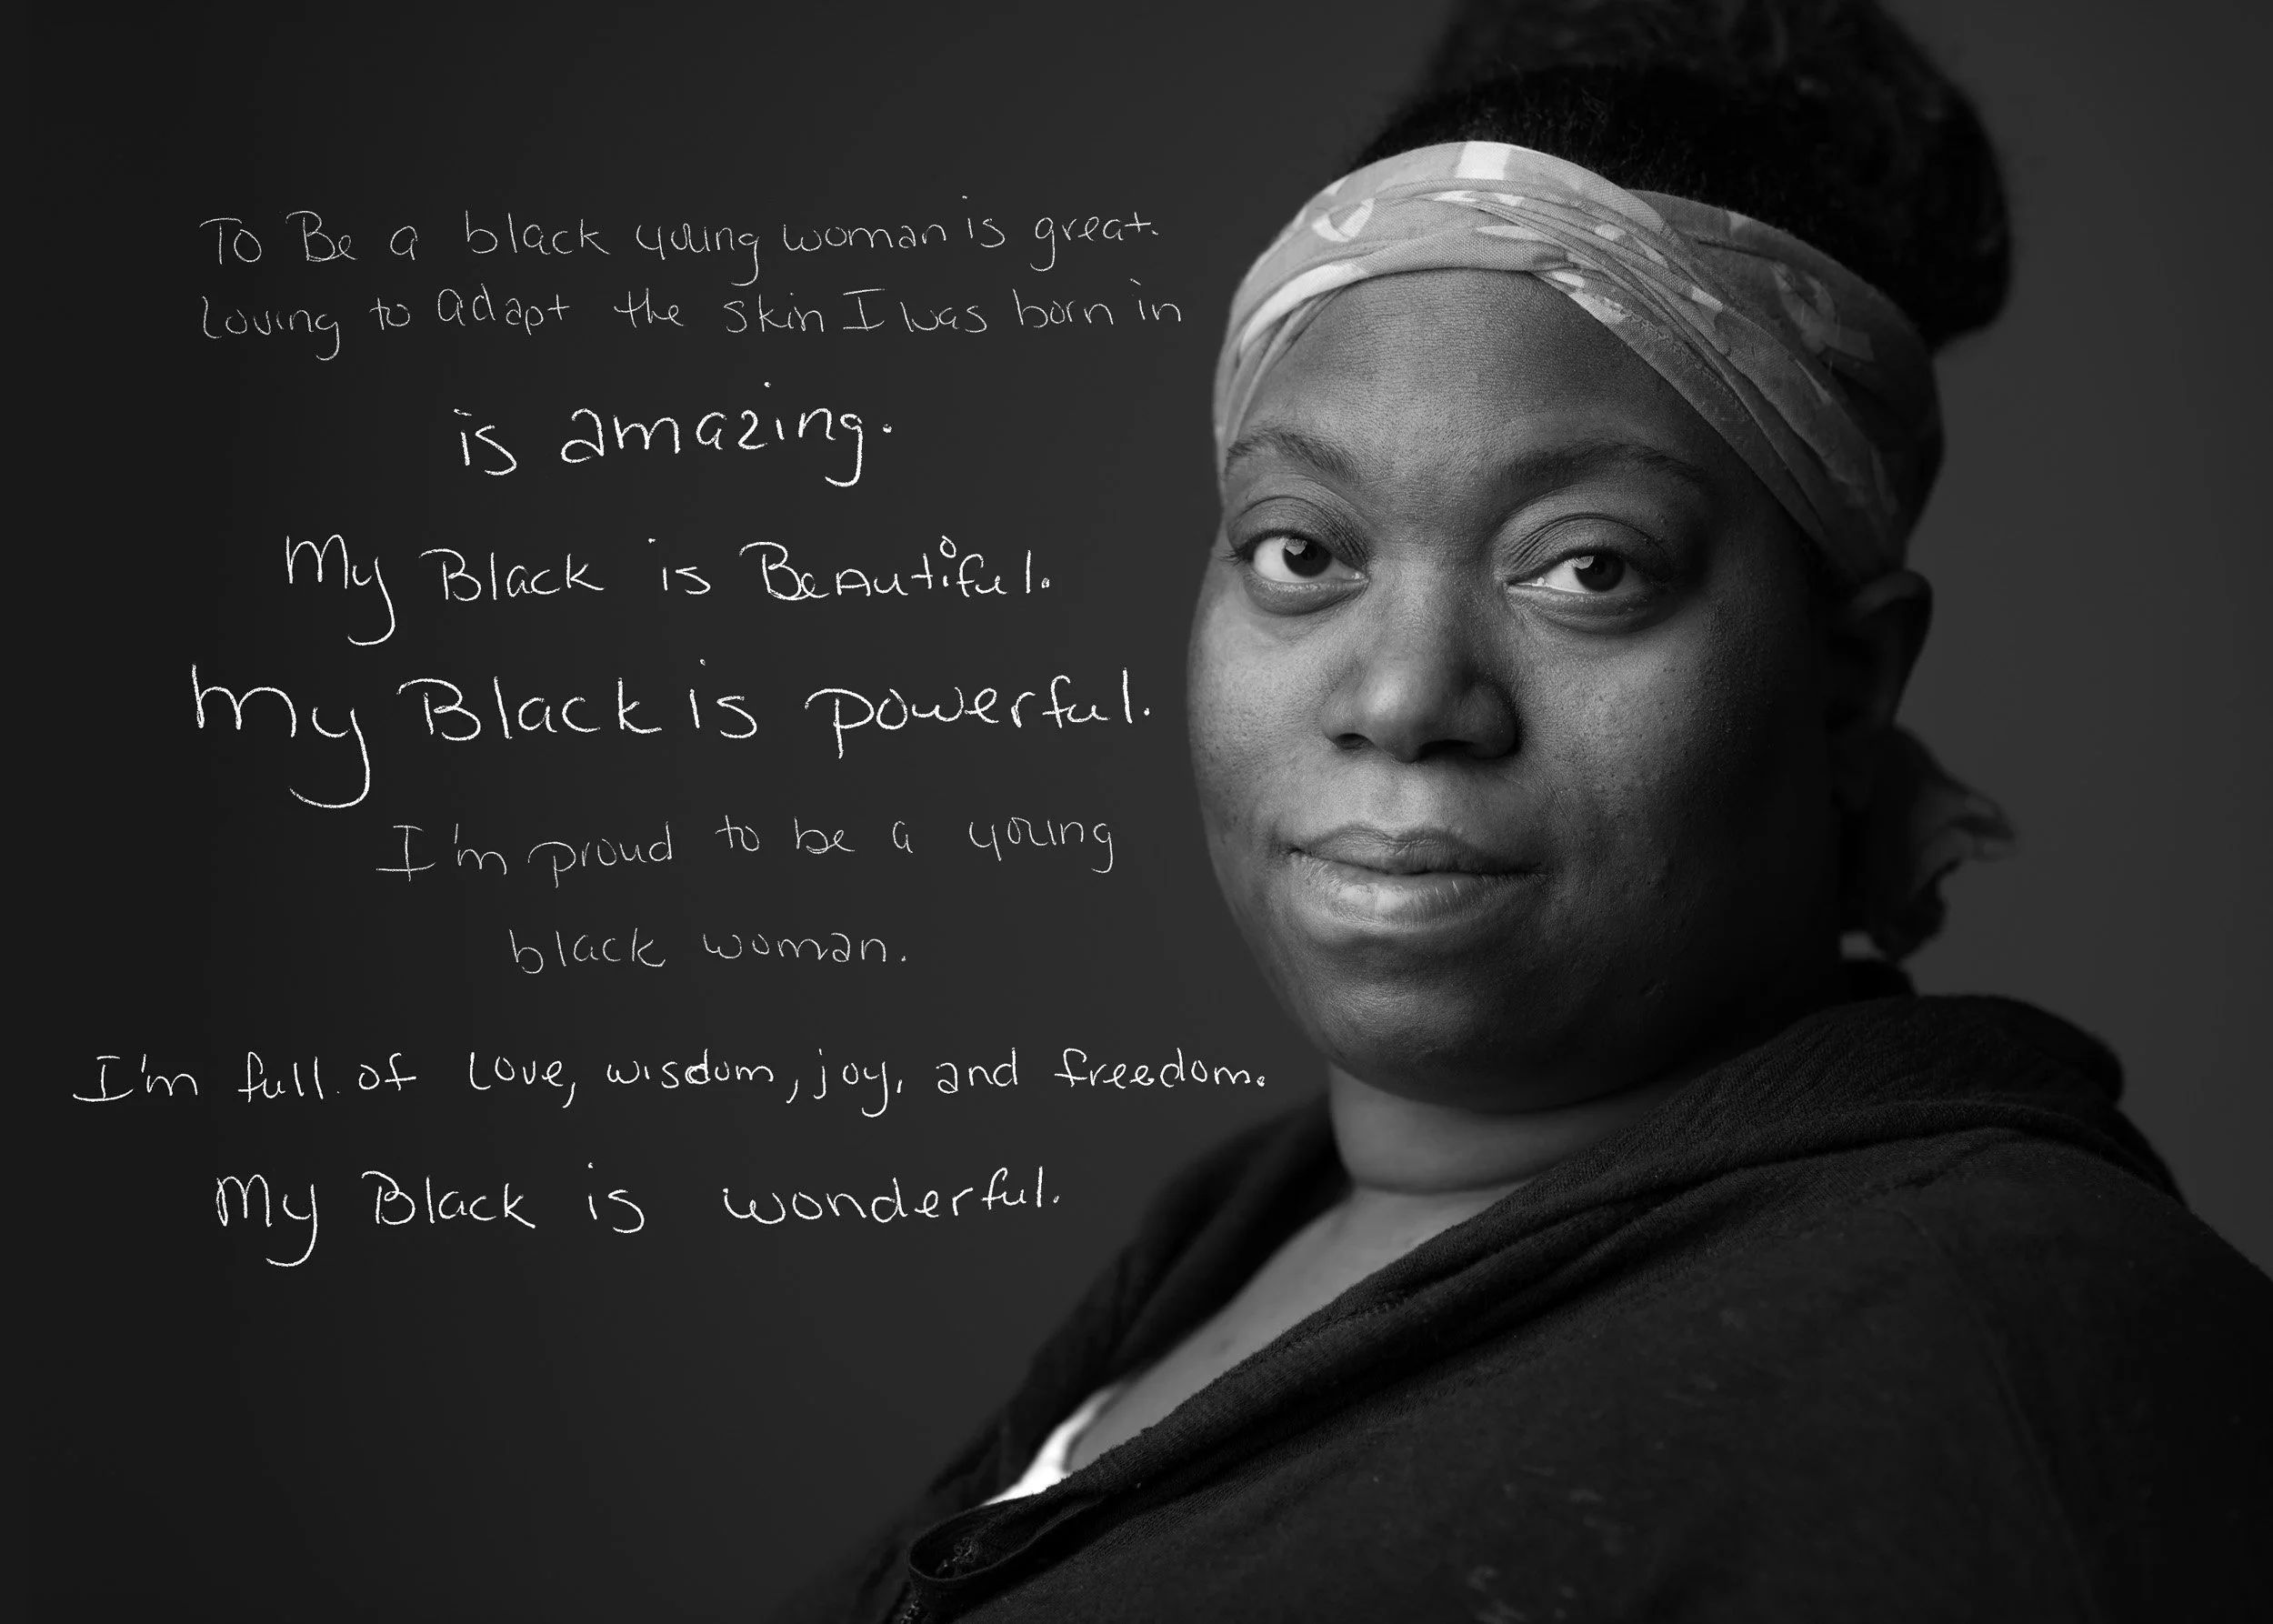 To Be a black young woman is great.
Loving to adapt the skin I was born in
is amazing.
My Black is Beautiful.
My Black is powerful.
I'm proud to be a young
black woman.
I'm full of love, wisdom, joy, and freedom.
My Black is wonderful.